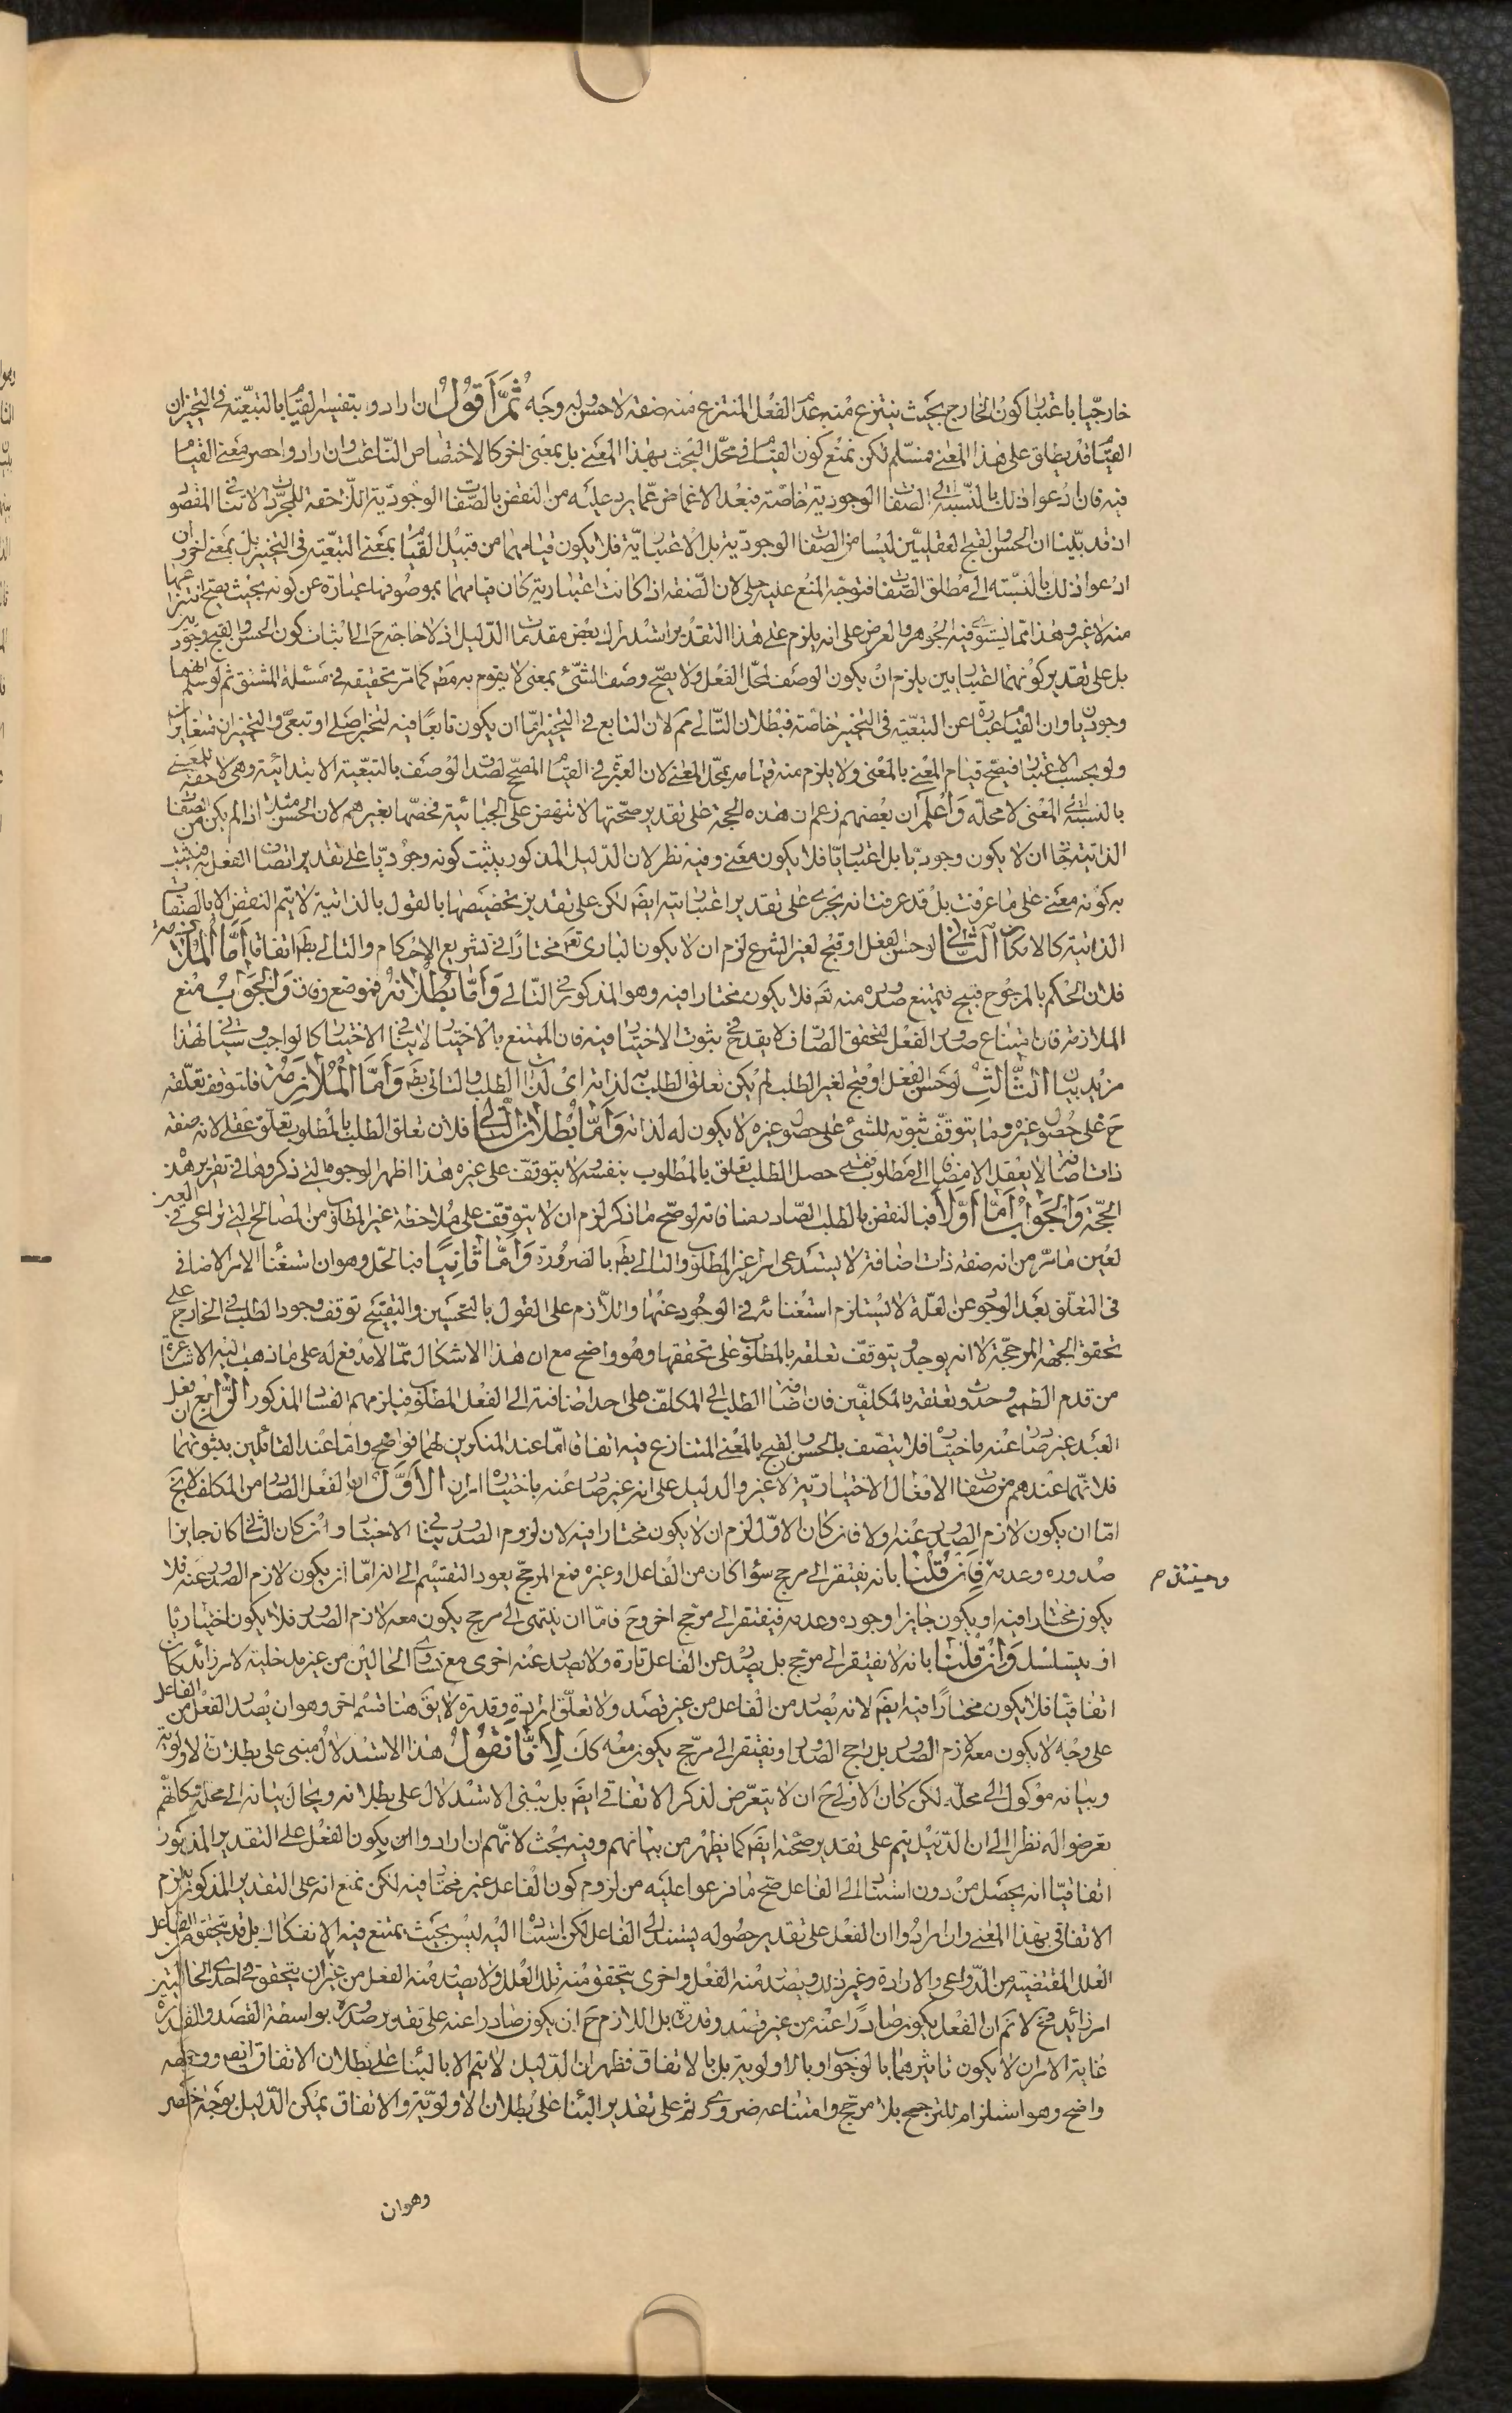 خارجيا باعتبار كون الخارج بحيث ينتزع منه عند الفعل المنتزع منه صفة لاحسن له وجه ثُمَّ أَقُولُ ان ارادوا بتفسير القيام بالتبعيّة في التحيز ان
القيام قد يطلق على هذا المعنى فمسلّم لكن نمنع كون القيام في محلّ البحث بهذا المعنى بل بمعنى اخر كالاختصاص النّاعت وان ارادوا حصر معنى القيام
فيه فان ادّعوا ذلك بالنّسبة الى الصّفات الوجوديّة خاصّة فبعد الاغماض عمّا يرد عليه من النقض بالصّفات الوجوديّة اللّاحقة للمجرّدات لا ينافي المقصود
اذ قد بيّنا ان الحسن والقبح العقليين ليسا من الصّفات الوجوديّة بل الاعتباريّة فلا يكون قيامهما من قبيل القيام بمعنى التبعيّة في التحيز بل بمعنى اخر وان
ادّعوا ذلك بالنّسبة الى مطلق الصّفات فتوجّه المنع عليه جلي لان الصّفة اذا كانت اعتبارية كان قيامهما بموصوفها عبارة عن كونه بحيث يصحّ انتزاعها
منه لا غير وهذا ممّا يستوي فيه الجوهر والعرض على انه يلزم على هذا التقدير استدراك بعض مقدمات الدّليل اذ لا حاجة ح الى اثبات كون الحسن والقبح وجوديين
بل على تقدير كونهما اعتباريين يلزم ان يكون الوصف لمحلّ الفعل ولا يصحّ وصف الشّئ بمعنى لا يقوم به مط كما مرّ تحقيقه في مسئلة المشتق ثم لو سلّم انهما
وجوديان وان القيام عبارة عن التبعيّة في التحيز خاصّة فبطلان التّالي مم لان التابع في التحيز امّا ان يكون تابعًا فيه لتحيز اصلي او تبعيّ والتحيزان متغايران
ولو بحسب الاعتبار فيصحّ قيام المعنى بالمعنى ولا يلزم منه قيامه بمحلّ المعنى لان العبرة في القيام المصحّح لصدق الوصف بالتبعيّة الابتدائية وهي لاحقة للمعنى
بالنسبة الى المعنى لا محله وَاعْلَم ان بعضهم زعم ان هذه الحجة على تقدير صحّتها لا تنهض على الجبائية فخصّها بغيرهم لان الحسن مثلا اذا لم يكن من الصفات
الذاتية جاز ان لا يكون وجوديّا بل اعتباريّا فلا يكون معنى وفيه نظر لان الدّليل المذكور يثبت كونه وجوديّا على تقدير اتصاف الفعل به فيثبت
به كونه معنى على ما عرفت بل قد عرفت انه يجري على تقدير اعتباريته ايضَ لكن على تقدير تخصيصها بالقول بالذاتية لا يتم النقض الا بالصّفات
الذاتية كالامكان الثّاني لو حسن الفعل او قبح لغير الشرع لزم ان لا يكون الباري تعَ مختارًا في تشريع الاحكام والتالي بط اتفاقا أَمَّا الْمُلَازَمَة
فلان الحكم بالمرجوح قبيح فيمتنع صدوره منه تعَ فلا يكون مختارا فيه وهو المذكور في التّالي وَأَمَّا بُطْلَانُهُ فموضع وفاق وَالْجَوَابُ منع
الملازمة فان امتناع صدور الفعل لتحقق الصّارف لا يقدح في ثبوت الاختيار فيه فان الممتنع بالاختيار لا ينافي الاختيار كالواجب وسيأتي لهذا
مزيد بيان الثَّالِثُ لو حسن الفعل او قبح لغير الطلب لم يكن تعلق الطلب به لذاته اي لذات الطلب والتالي بط وَأَمَّا الْمُلَازَمَةُ فلتوقف تعلّقه
ح على حصول غيره وما يتوقّف ثبوته للشئ على حصول غيره لا يكون له لذاته وَأَمَّا بُطْلَانُ التَّالِي فلان تعلق الطلب بالمطلوب تعلّق عقلي لانه صفة
ذات اضافة لا يعقل الا مضافا الى مطلوب فمتى حصل الطلب تعلق بالمطلوب بنفسه ولا يتوقف على غيره هذا اظهر الوجوه التي ذكروها في تقرير هذه
الحجّة وَالْجَوَابُ أَمَّا أَوَّلًا فبالنقض بالطلب الصّادر منا فانه لو صحّ ما ذكر لزم ان لا يتوقف على ملاحظة غير المطلوب من المصالح التي تراعى في الغير
لعين ما مرّ من انه صفة ذات اضافة لا يستدعي امرا غير المطلوب والتالي بط بالضرورة وَأَمَّا ثَانِيًا فبالحلّ وهو ان استغناء الامر الاضافي
في التعلق بعد الوجود عن العلّة لا يستلزم استغنائه في الوجود عنها واللّازم على القول بالتحسين والتقبيح توقف وجود الطلب في الخارج على
تحقق الجهة المرجّحة لا انه يوجد ويتوقّف تعلقه بالمطلوب على تحققها وهو واضح مع ان هذا الاشكال ممّا لا مدفع له على ما ذهب اليه الاشاعرة
من قدم الطلب وحدوث تعلقه بالمكلفين فان اضافة الطلب الى المكلّف على حد اضافته الى الفعل المطلوب فيلزمهم الفساد المذكور الرّابع ان فعل
العبد غير صادر عنه باختياره فلا يتّصف بالحسن والقبح بالمعنى المتنازع فيه اتفاقا امّا عند المنكرين لهما فواضح وامّا عند القائلين بثبوتهما
فلانّهما عندهم من صفات الافعال الاختياريّة لا غير والدليل على انه غير صادر عنه باختياره امران الأَوَّلُ ان الفعل الصادر من المكلف لا يخ
امّا ان يكون لازم الصدور عنه او لا فان كان الاوّل لزم ان لا يكون مختارا فيه لان لزوم الصدور ينافي الاختيار وان كان الثاني كان جايزا
صدوره وعدمه فَإِنْ قُلْنَا بانه يفتقر الى مرجح سواء كان من الفاعل او غيره فمع المرجّح يعود التقسيم الى انه امّا ان يكون لازم الصدور عنه فلا
وحينئذ م
يكون مختارا فيه او يكون جايزا وجوده وعدمه فيفتقر الى مرجّح اخر وح فامّا ان ينتهي الى مرجح يكون معه لازم الصدور فلا يكون اختياريّا
او يتسلسل وَإِنْ قُلْنَا بانه لا يفتقر الى مرجّح بل يصدر عن الفاعل تارة ولا يصدر عنه اخرى مع تساوي الحالين من غير مدخلية لامر زائد كان
اتفاقيّا فلا يكون مختارًا فيه ايضَ لانه يصدر من الفاعل من غير قصد ولا تعلّق ارادة وقدرة لا يقَ هنا قسم اخر وهو ان يصدر الفعل من الفاعل
على وجه لا يكون معه لازم الصدور بل راجح الصدور او يفتقر الى مرجّح يكون معه كك لِأَنَّا نَقُولُ هذا الاستدلال مبني على بطلان الاولوية
وبيانه موكول الى محلّه لكن كان الاولى ح ان لا يتعرّض لذكر الاتفاقي ايضَ بل يبنى الاستدلال على بطلانه ويحال بيانه الى محله وكانّهم
تعرضوا له نظرا الى ان الدّليل يتم على تقدير صحّته ايضَ كما يظهر من بيانهم وفيه بحث لانّهم ان ارادوا ان يكون الفعل على التقدير المذكور
اتفاقيّا انه يحصل من دون استناد الى الفاعل صحّ ما فرعوا عليه من لزوم كون الفاعل غير مختار فيه لكن نمنع انه على التقدير المذكور يلزم
الاتفاقي بهذا المعنى وان ارادوا ان الفعل على تقدير حصوله يستند الى الفاعل لكن استناده اليه ليس بحيث يمتنع فيه الانفكاك بل قد يتحقق من الفاعل
العلل المقتضية من الدّواعي والارادة وغير ذلك ويصدر منه الفعل واخرى يتحقق منه تلك العلل ولا يصدر منه الفعل من غير ان يتحقق في احدى الحالتين
امر زائد فح لا نم ان الفعل يكون صادرًا عنه من غير قصد وقدرة بل اللازم ح ان يكون صادرا عنه على تقدير صدوره بواسطة القصد والقدرة
غاية الامر ان لا يكون تاثيرهما بالوجوب او بالاولوية بل بالاتفاق فظهر ان الدّليل لا يتم الا بالبناء على بطلان الاتفاق ايضَ ووجهه
واضح وهو استلزامه للترجيح بلا مرجّح وامتناعه ضروري ثم على تقدير البناء على بطلان الاولويّة والاتفاق يمكن الدّليل بوجه اخصر
وهو ان